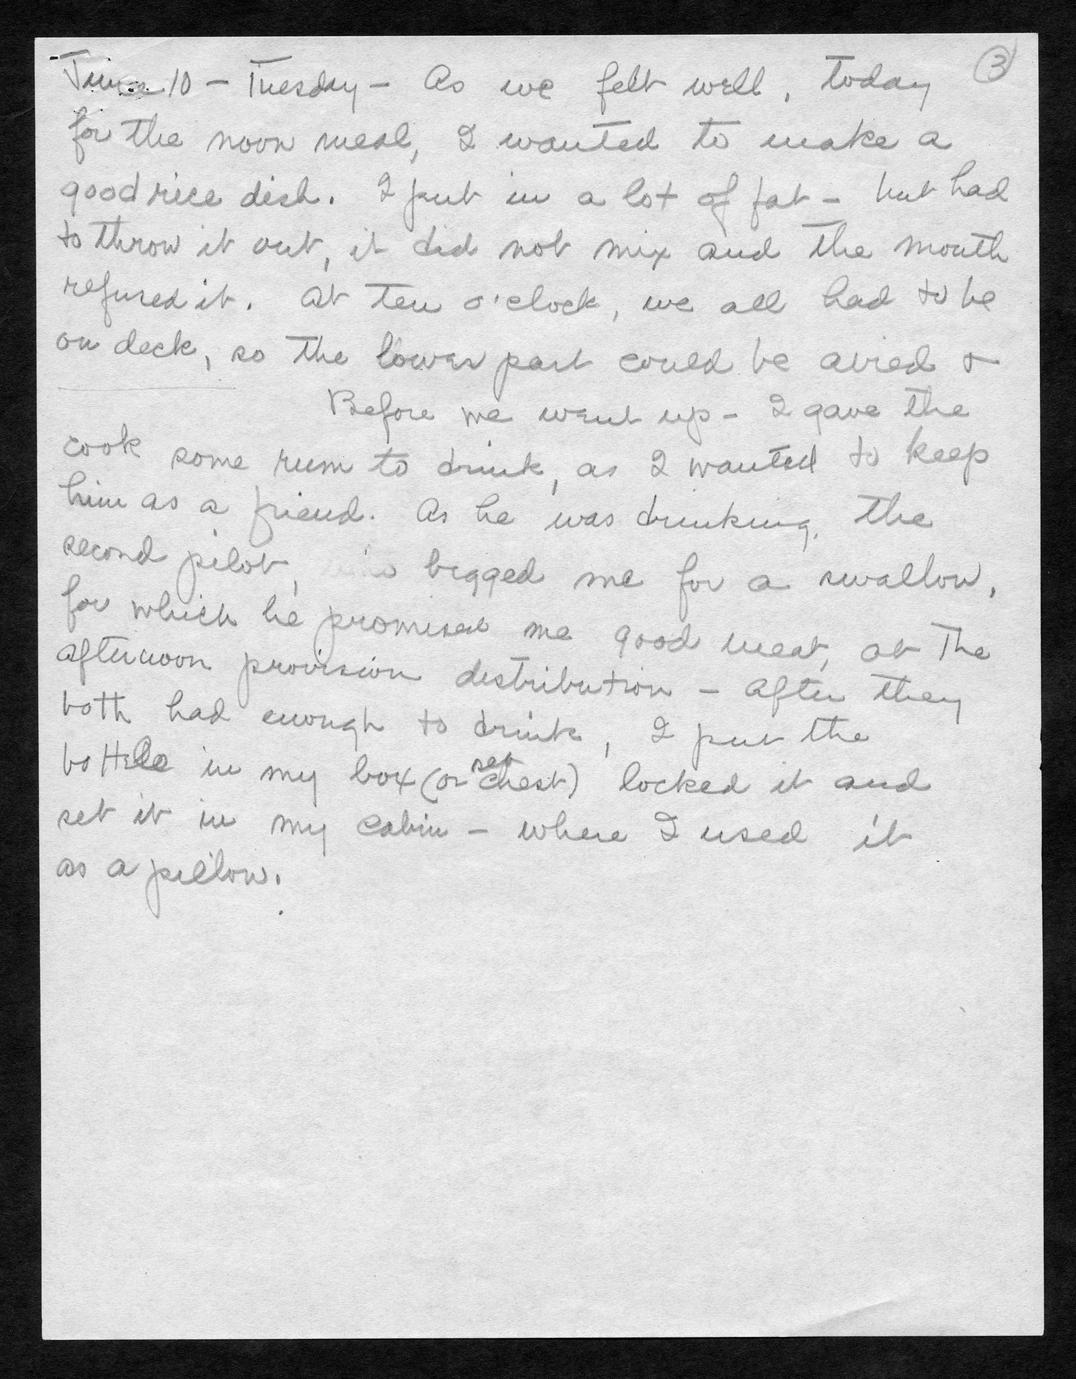 3
June 10 - Tuesday - As we felt well, today
for the noon meal, I wanted to make a
good rice dish. I put in a lot of fat - but had
to throw it out, it did not mix and the mouth
refused it. At ten o'clock, we all had to be
on deck, so the lower part could be aired &
Before we went up - I gave the
cook some rum to drink, as I wanted to keep
him as a friend. As he was drinking, the
second pilot, begged me for a swallow,
for which he promised me good meat, at the
afternoon provision distribution - After they
both had enough to drink, I put the
bottle in my box (or sea chest) locked it and
set it in my cabin - where I used it
as a pillow.